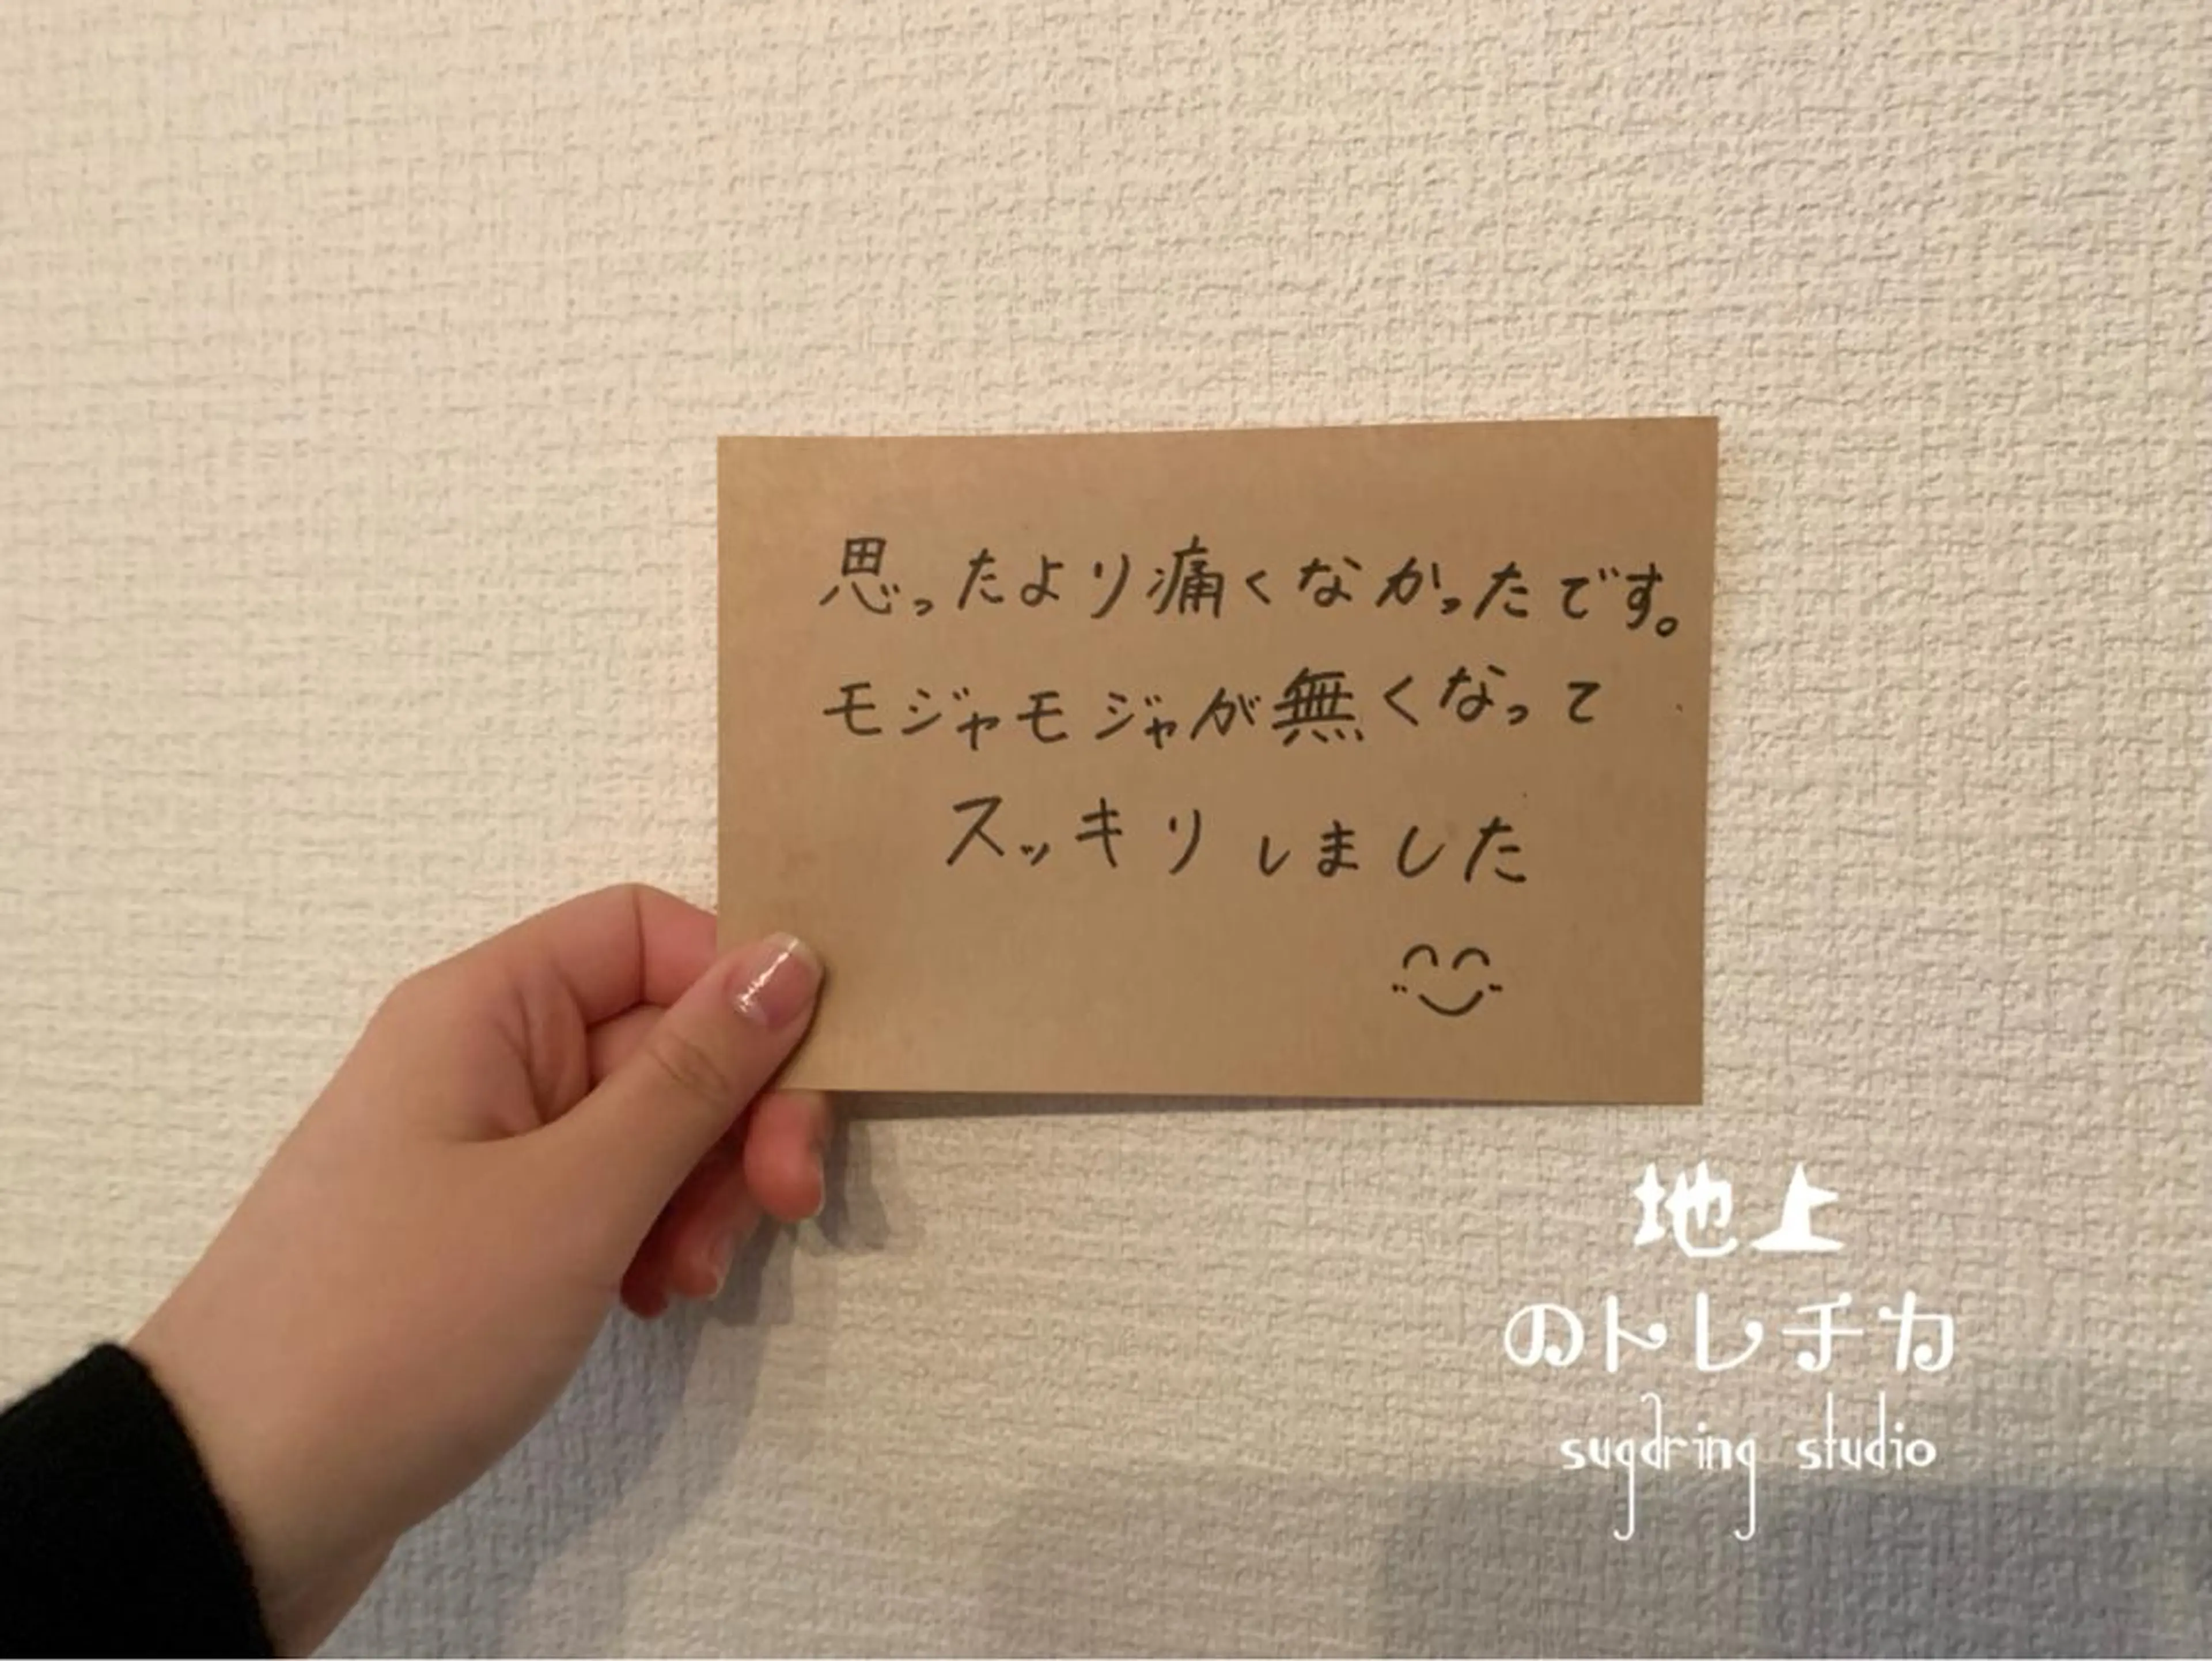 思ったより痛くなかったです。
モジャモジャが無くなって
スッキリしました
地上
のトレチカ
sugdring studio